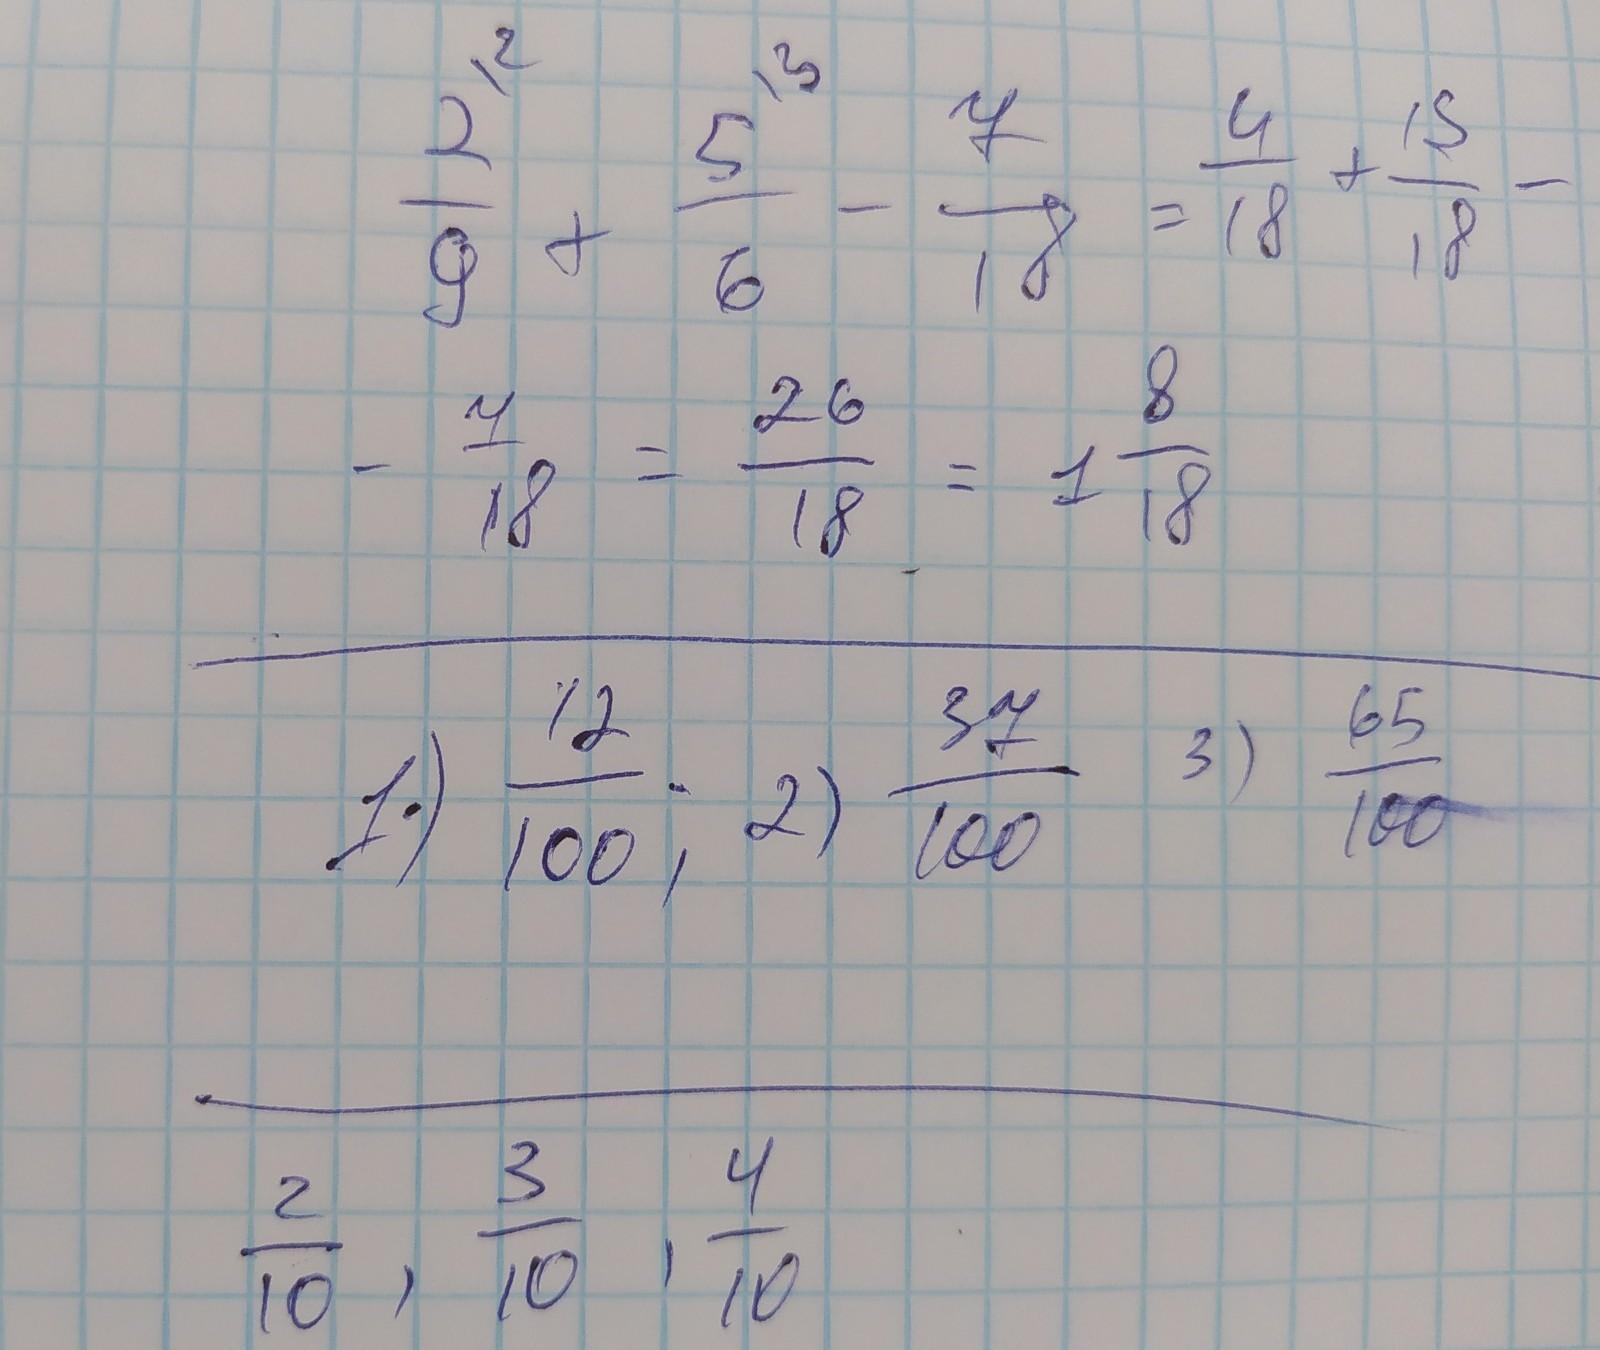 2/9 ^2 + 5/6 ^3 - 7/18 = 4/18 + 15/18 -
- 7/18 = 26/18 = 1 8/18
1.) 12/100 ; 2) 37/100 3) 65/100
2/10 , 3/10 , 4/10